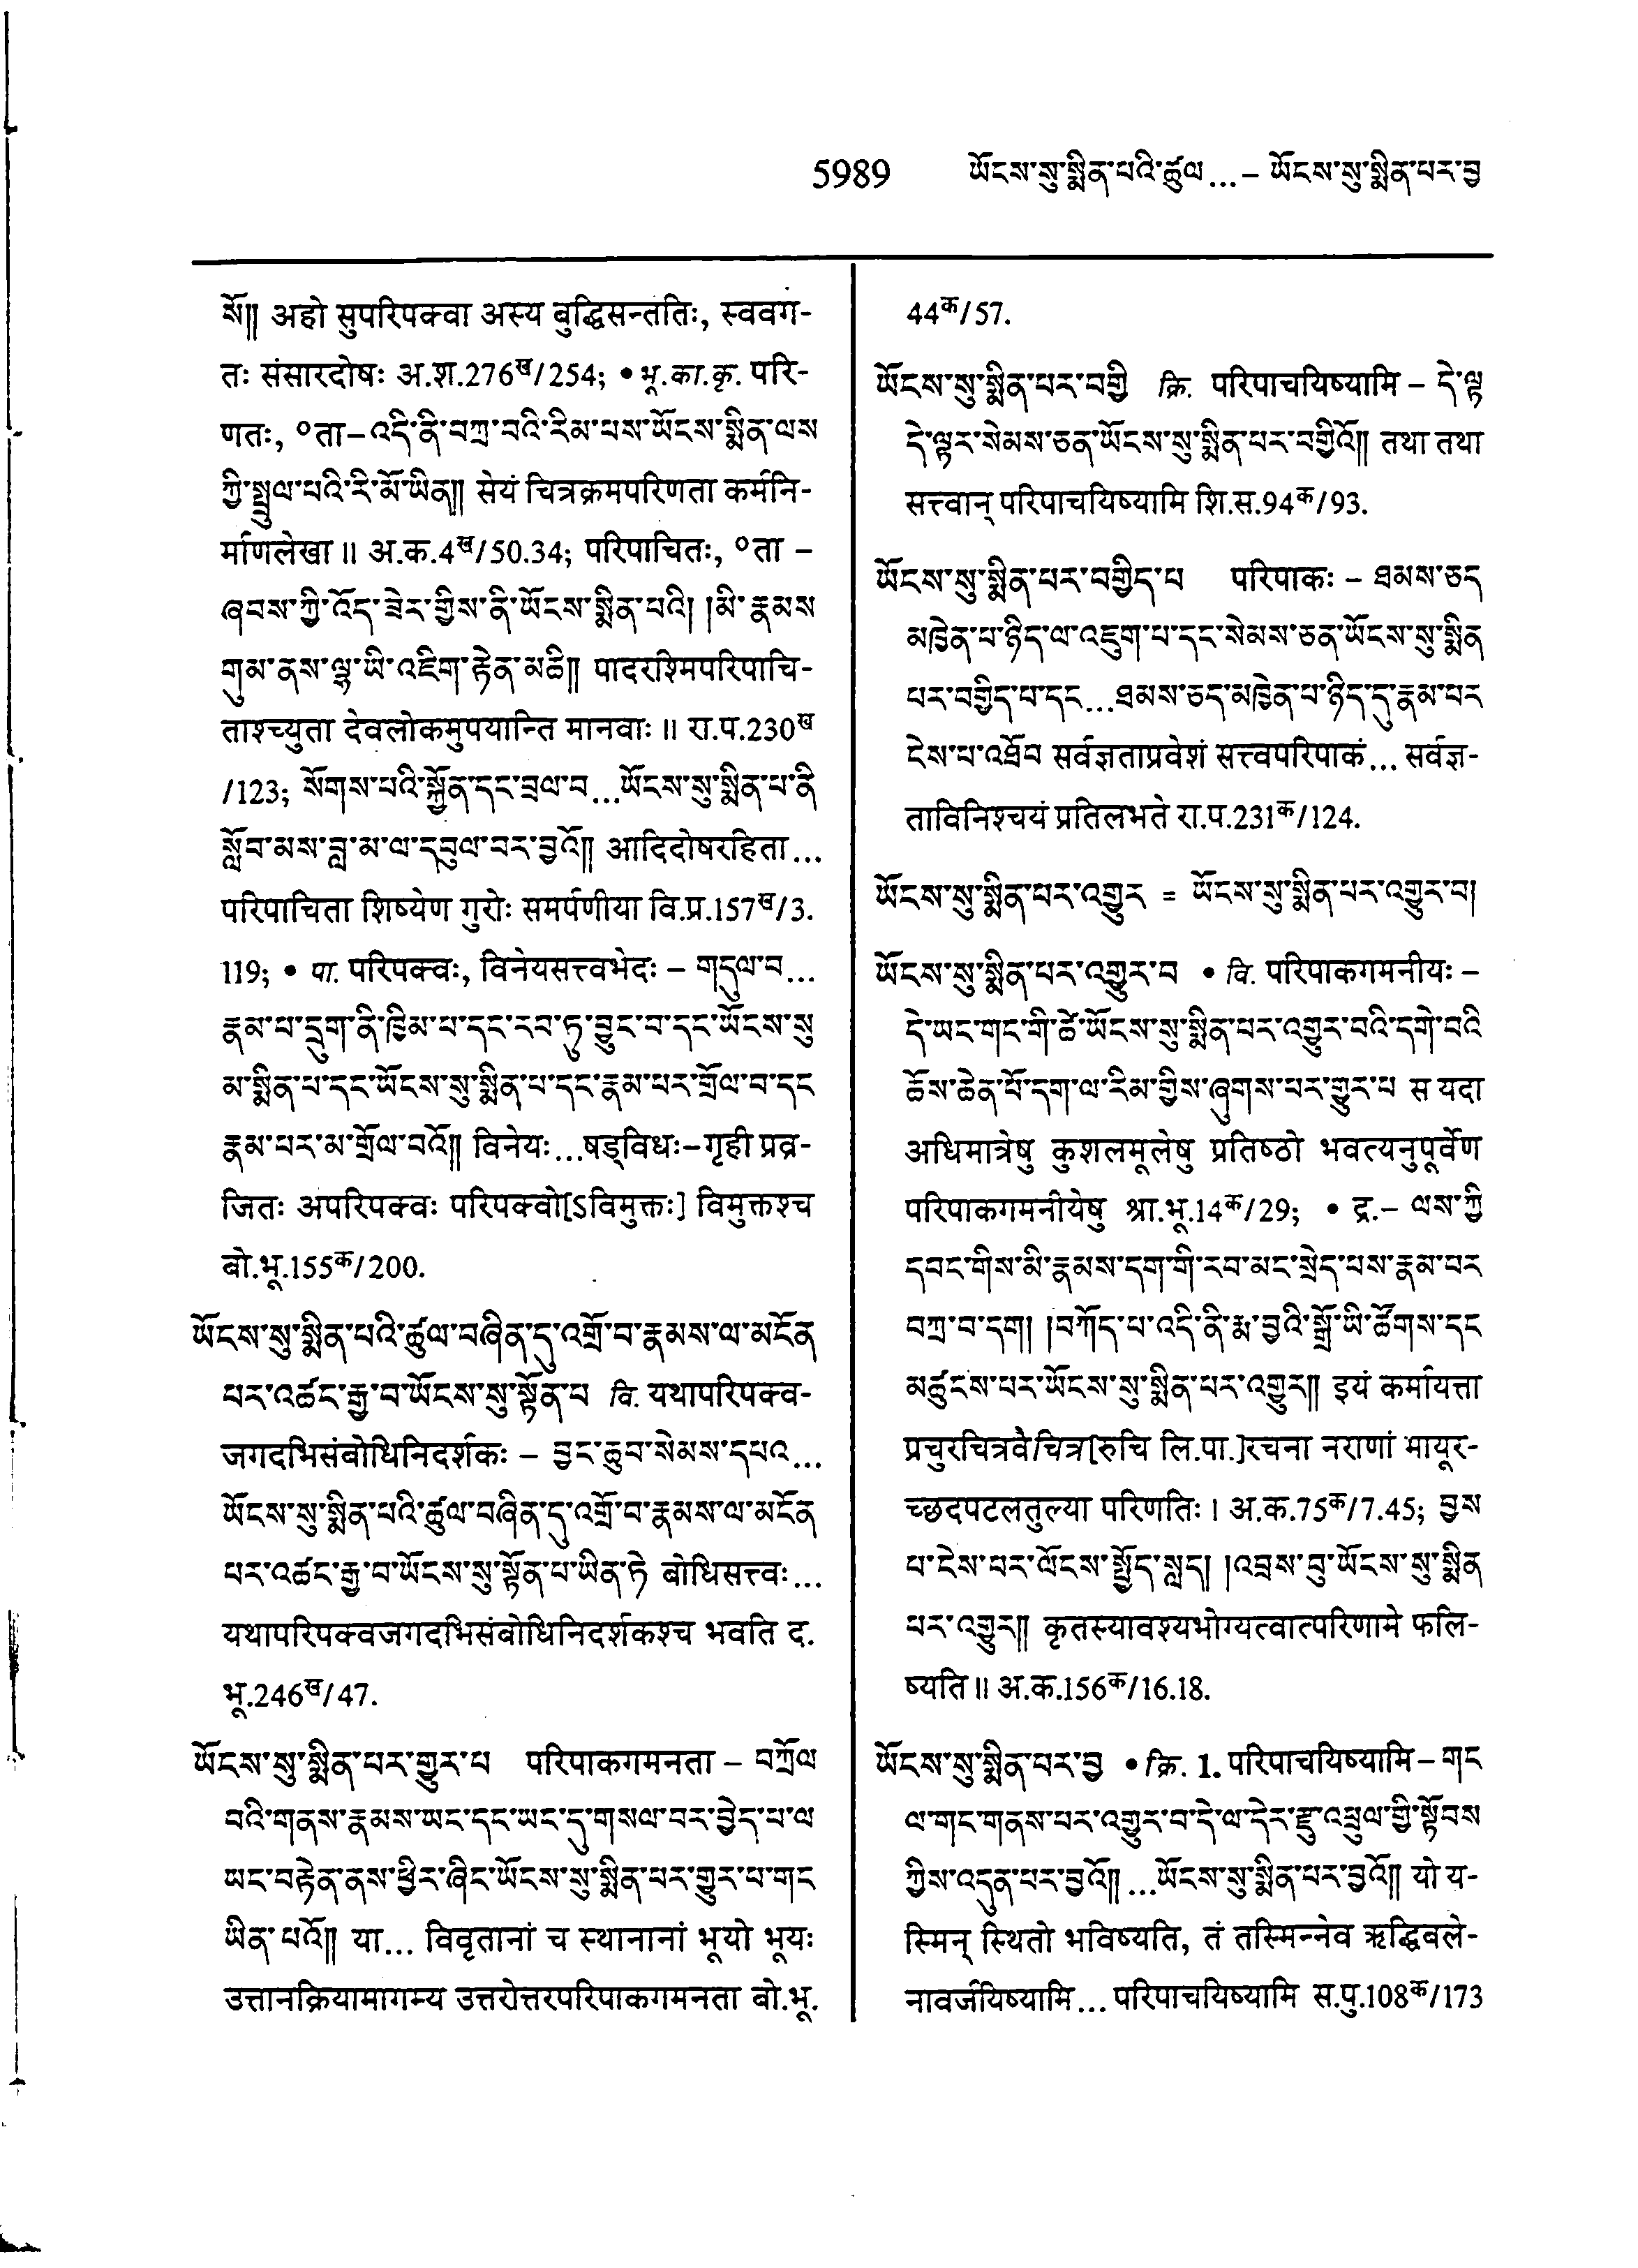 5989 ཡོངས་སུ་སྨིན་པའི་ཚུལ...– ཡོངས་སུ་སྨིན་པར་བྱ
སོ།། अहो सुपरिपक्वा अस्य बुद्धिसन्ततिः, स्ववग-
तः संसारदोषः अ.श.276ख/254; • भू.का.कृ. परि-
णतः, ०ता–འདི་ནི་བཀྲ་བའི་རིམ་པས་ཡོངས་སྨིན་ལས
ཀྱི་སྤྲུལ་པའི་རི་མོ་ཡིན།། सेयं चित्रक्रमपरिणता कर्मनि-
र्माणलेखा ॥ अ.क.4ख/50.34; परिपाचितः, ०ता –
ཞབས་ཀྱི་འོད་ཟེར་གྱིས་ནི་ཡོངས་སྨིན་པའི། །མི་རྣམས
གུམ་ནས་ལྷ་ཡི་འཇིག་རྟེན་མཆི།། पादरश्मिपरिपाचि-
ताश्च्युता देवलोकमुपयान्ति मानवाः ॥ रा.प.230ख
/123; སོགས་པའི་སྐྱོན་དང་བྲལ་བ...ཡོངས་སུ་སྨིན་པ་ནི
སློབ་མས་བླ་མ་ལ་དབུལ་བར་བྱའོ།། आदिदोषरहिता...
परिपाचिता शिष्येण गुरोः समर्पणीया वि.प्र.157ख/3.
119; • पा. परिपक्वः, विनेयसत्त्वभेदः – གདུལ་བ...
རྣམ་པ་དྲུག་ནི་ཁྱིམ་པ་དང་རབ་ཏུ་བྱུང་བ་དང་ཡོངས་སུ
མ་སྨིན་པ་དང་ཡོངས་སུ་སྨིན་པ་དང་རྣམ་པར་གྲོལ་བ་དང
རྣམ་པར་མ་གྲོལ་བའོ།། विनेयः...षड्विधः–गृही प्रव्र-
जितः अपरिपक्वः परिपक्वो[ऽविमुक्तः] विमुक्तश्च
बो.भू.155क/200.
ཡོངས་སུ་སྨིན་པའི་ཚུལ་བཞིན་དུ་འགྲོ་བ་རྣམས་ལ་མངོན
པར་འཚང་རྒྱ་བ་ཡོངས་སུ་སྟོན་པ वि. यथापरिपक्व-
जगदभिसंबोधिनिदर्शकः – བྱང་ཆུབ་སེམས་དཔའ...
ཡོངས་སུ་སྨིན་པའི་ཚུལ་བཞིན་དུ་འགྲོ་བ་རྣམས་ལ་མངོན
པར་འཚང་རྒྱ་བ་ཡོངས་སུ་སྟོན་པ་ཡིན་ཏེ बोधिसत्त्वः...
यथापरिपक्वजगदभिसंबोधिनिदर्शकश्च भवति द.
भू.246ख/47.
ཡོངས་སུ་སྨིན་པར་གྱུར་པ परिपाकगमनता – བཀྲོལ
བའི་གནས་རྣམས་ཡང་དང་ཡང་དུ་གསལ་བར་བྱེད་པ་ལ
ཡང་བརྟེན་ནས་ཕྱིར་ཞིང་ཡོངས་སུ་སྨིན་པར་གྱུར་པ་གང
ཡིན་པའོ།། या... विवृतानां च स्थानानां भूयो भूयः
उत्तानक्रियामागम्य उत्तरोत्तरपरिपाकगमनता बो.भू.
44क/57.
ཡོངས་སུ་སྨིན་པར་བགྱི क्रि. परिपाचयिष्यामि – དེ་ལྟ
དེ་ལྟར་སེམས་ཅན་ཡོངས་སུ་སྨིན་པར་བགྱིའོ།། तथा तथा
सत्त्वान् परिपाचयिष्यामि शि.स.94क/93.
ཡོངས་སུ་སྨིན་པར་བགྱིད་པ परिपाकः – ཐམས་ཅད
མཁྱེན་པ་ཉིད་ལ་འཇུག་པ་དང་སེམས་ཅན་ཡོངས་སུ་སྨིན
པར་བགྱིད་པ་དང...ཐམས་ཅད་མཁྱེན་པ་ཉིད་དུ་རྣམ་པར
ངེས་པ་འཐོབ सर्वज्ञताप्रवेशं सत्त्वपरिपाकं... सर्वज्ञ-
ताविनिश्चयं प्रतिलभते रा.प.231क/124.
ཡོངས་སུ་སྨིན་པར་འགྱུར = ཡོངས་སུ་སྨིན་པར་འགྱུར་བ།
ཡོངས་སུ་སྨིན་པར་འགྱུར་བ • वि. परिपाकगमनीयः –
དེ་ཡང་གང་གི་ཚེ་ཡོངས་སུ་སྨིན་པར་འགྱུར་བའི་དགེ་བའི
ཆོས་ཆེན་པོ་དག་ལ་རིམ་གྱིས་ཞུགས་པར་གྱུར་པ स यदा
अधिमात्रेषु कुशलमूलेषु प्रतिष्ठो भवत्यनुपूर्वेण
परिपाकगमनीयेषु श्रा.भू.14क/29; • द्र.– ལས་ཀྱི
དབང་གིས་མི་རྣམས་དག་གི་རབ་མང་སྲེད་པས་རྣམ་པར
བཀྲ་བ་དག། །བཀོད་པ་འདི་ནི་རྨ་བྱའི་སྒྲོ་ཡི་ཚོགས་དང
མཚུངས་པར་ཡོངས་སུ་སྨིན་པར་འགྱུར།། इयं कर्मायत्ता
प्रचुरचित्रवैचित्र[रुचि लि.पा.]रचना नराणां मायूर-
च्छदपटलतुल्या परिणतिः । अ.क.75क/7.45; བྱས
པ་ངེས་པར་ལོངས་སྤྱོད་སླད། །འབྲས་བུ་ཡོངས་སུ་སྨིན
པར་འགྱུར།། कृतस्यावश्यभोग्यत्वात्परिणामे फलि-
ष्यति ॥ अ.क.156क/16.18.
ཡོངས་སུ་སྨིན་པར་བྱ • क्रि. 1. परिपाचयिष्यामि – གང
ལ་གང་གནས་པར་འགྱུར་བ་དེ་ལ་དེར་རྫུ་འཕྲུལ་གྱི་སྟོབས
ཀྱིས་འདུན་པར་བྱའོ།། ...ཡོངས་སུ་སྨིན་པར་བྱའོ།། यो य-
स्मिन् स्थितो भविष्यति, तं तस्मिन्नेव ऋद्धिबले-
नावर्जयिष्यामि... परिपाचयिष्यामि स.पु.108क/173